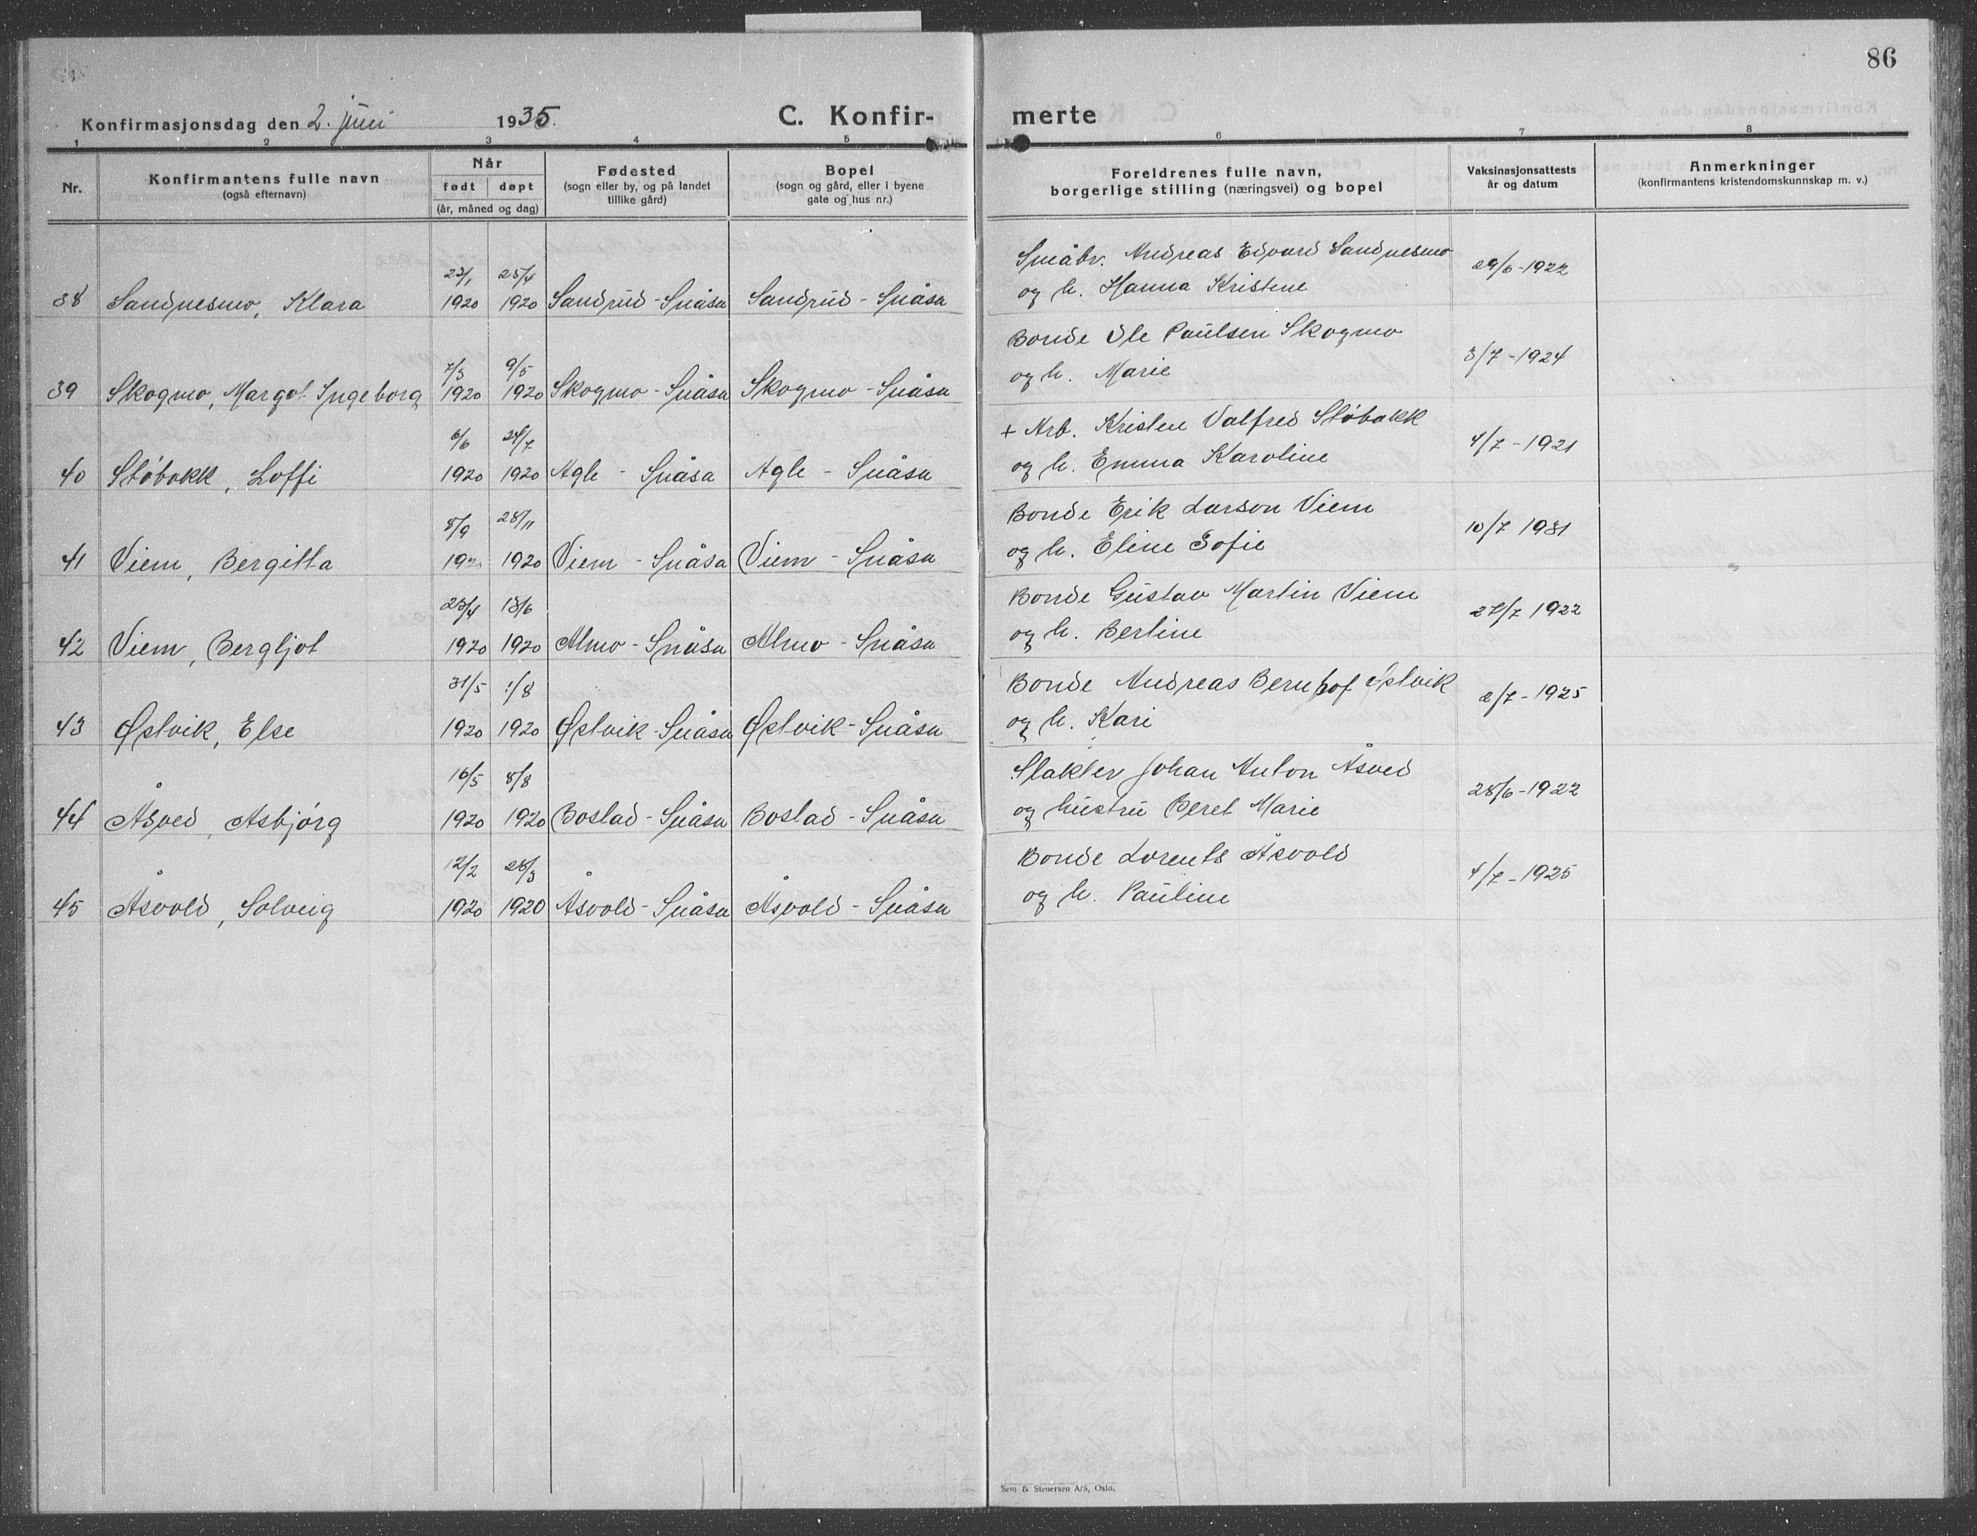 86
Konfirmasjonsdag den 2. juni 1935.
C. Konfirmerte
1 2 3 4 5 6 7 8
Nr.
Konfirmantens fulle navn
(også efternavn)
Når
født døpt
(år, måned og dag)
Fødested
(sogn eller by, og på landet
tillike gård)
Bopel
(sogn og gård, eller i byene
gate og hus nr.)
Foreldrenes fulle navn,
borgerlige stilling (næringsvei) og bopel
Vaksinasjonsattests
år og datum
Anmerkninger
(konfirmantens kristendomskunnskap m. v.)
23/1 25/4 Småbr. Andreas Edvard Sandnesmo 29/6-1922
38 Sandnesmo, Klara 1920 1920 Sandrud - Snåsa Sandrud - Snåsa og h. Hanna Kristine
7/3 9/5 Bonde Ole Paulsen Skogmo 3/7-1924
39 Skogmo, Margot Ingeborg 1920 1920 Skogmo - Snåsa Skogmo - Snåsa og h. Marie
6/6 24/7 + Arb. Kristen Valfred Støbakk 4/7-1921
40 Støbakk, Loffi 1920 1920 Agle - Snåsa Agle - Snåsa og h. Emma Karoline
8/9 28/11 Bonde Erik Larson Viem 10/7 1931
41 Viem, Bergitta 1920 1920 Viem - Snåsa Viem - Snåsa og h. Eline Sofie
23/4 13/6 Bonde Gustav Martin Viem 27/7 1922
42 Viem, Bergljot 1920 1920 Almo - Snåsa Almo - Snåsa og h. Bertine
31/5 1/8 Bonde Andreas Bernhof Østvik 2/7-1925
43 Østvik, Else 1920 1920 Østvik - Snåsa Østvik - Snåsa og h. Kari
16/5 8/8 Slakter Johan Anton Åsved 28/6-1922
44 Åsved, Asbjørg 1920 1920 Bostad - Snåsa Bostad - Snåsa og hustru Beret Marie
12/2 28/3 Bonde Lorents Åsvold 4/7-1925
45 Åsvold, Solveig 1920 1920 Åsvold - Snåsa Åsvold - Snåsa og h. Pauline
Sem & Stenersen A/S, Oslo.